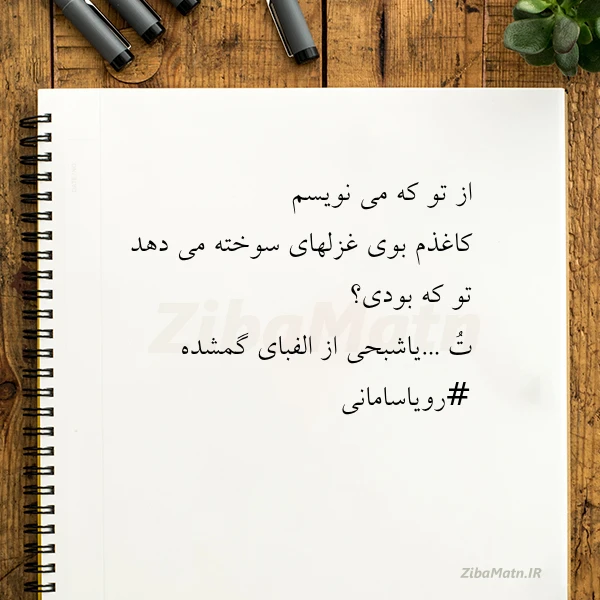 از تو که می نویسم
کاغذم بوی غزلهای سوخته می دهد
تو که بودی؟
تُ ...یاشبحی از الفبای گمشده
#رویاسامانی
ZibaMatn
ZibaMatn.IR